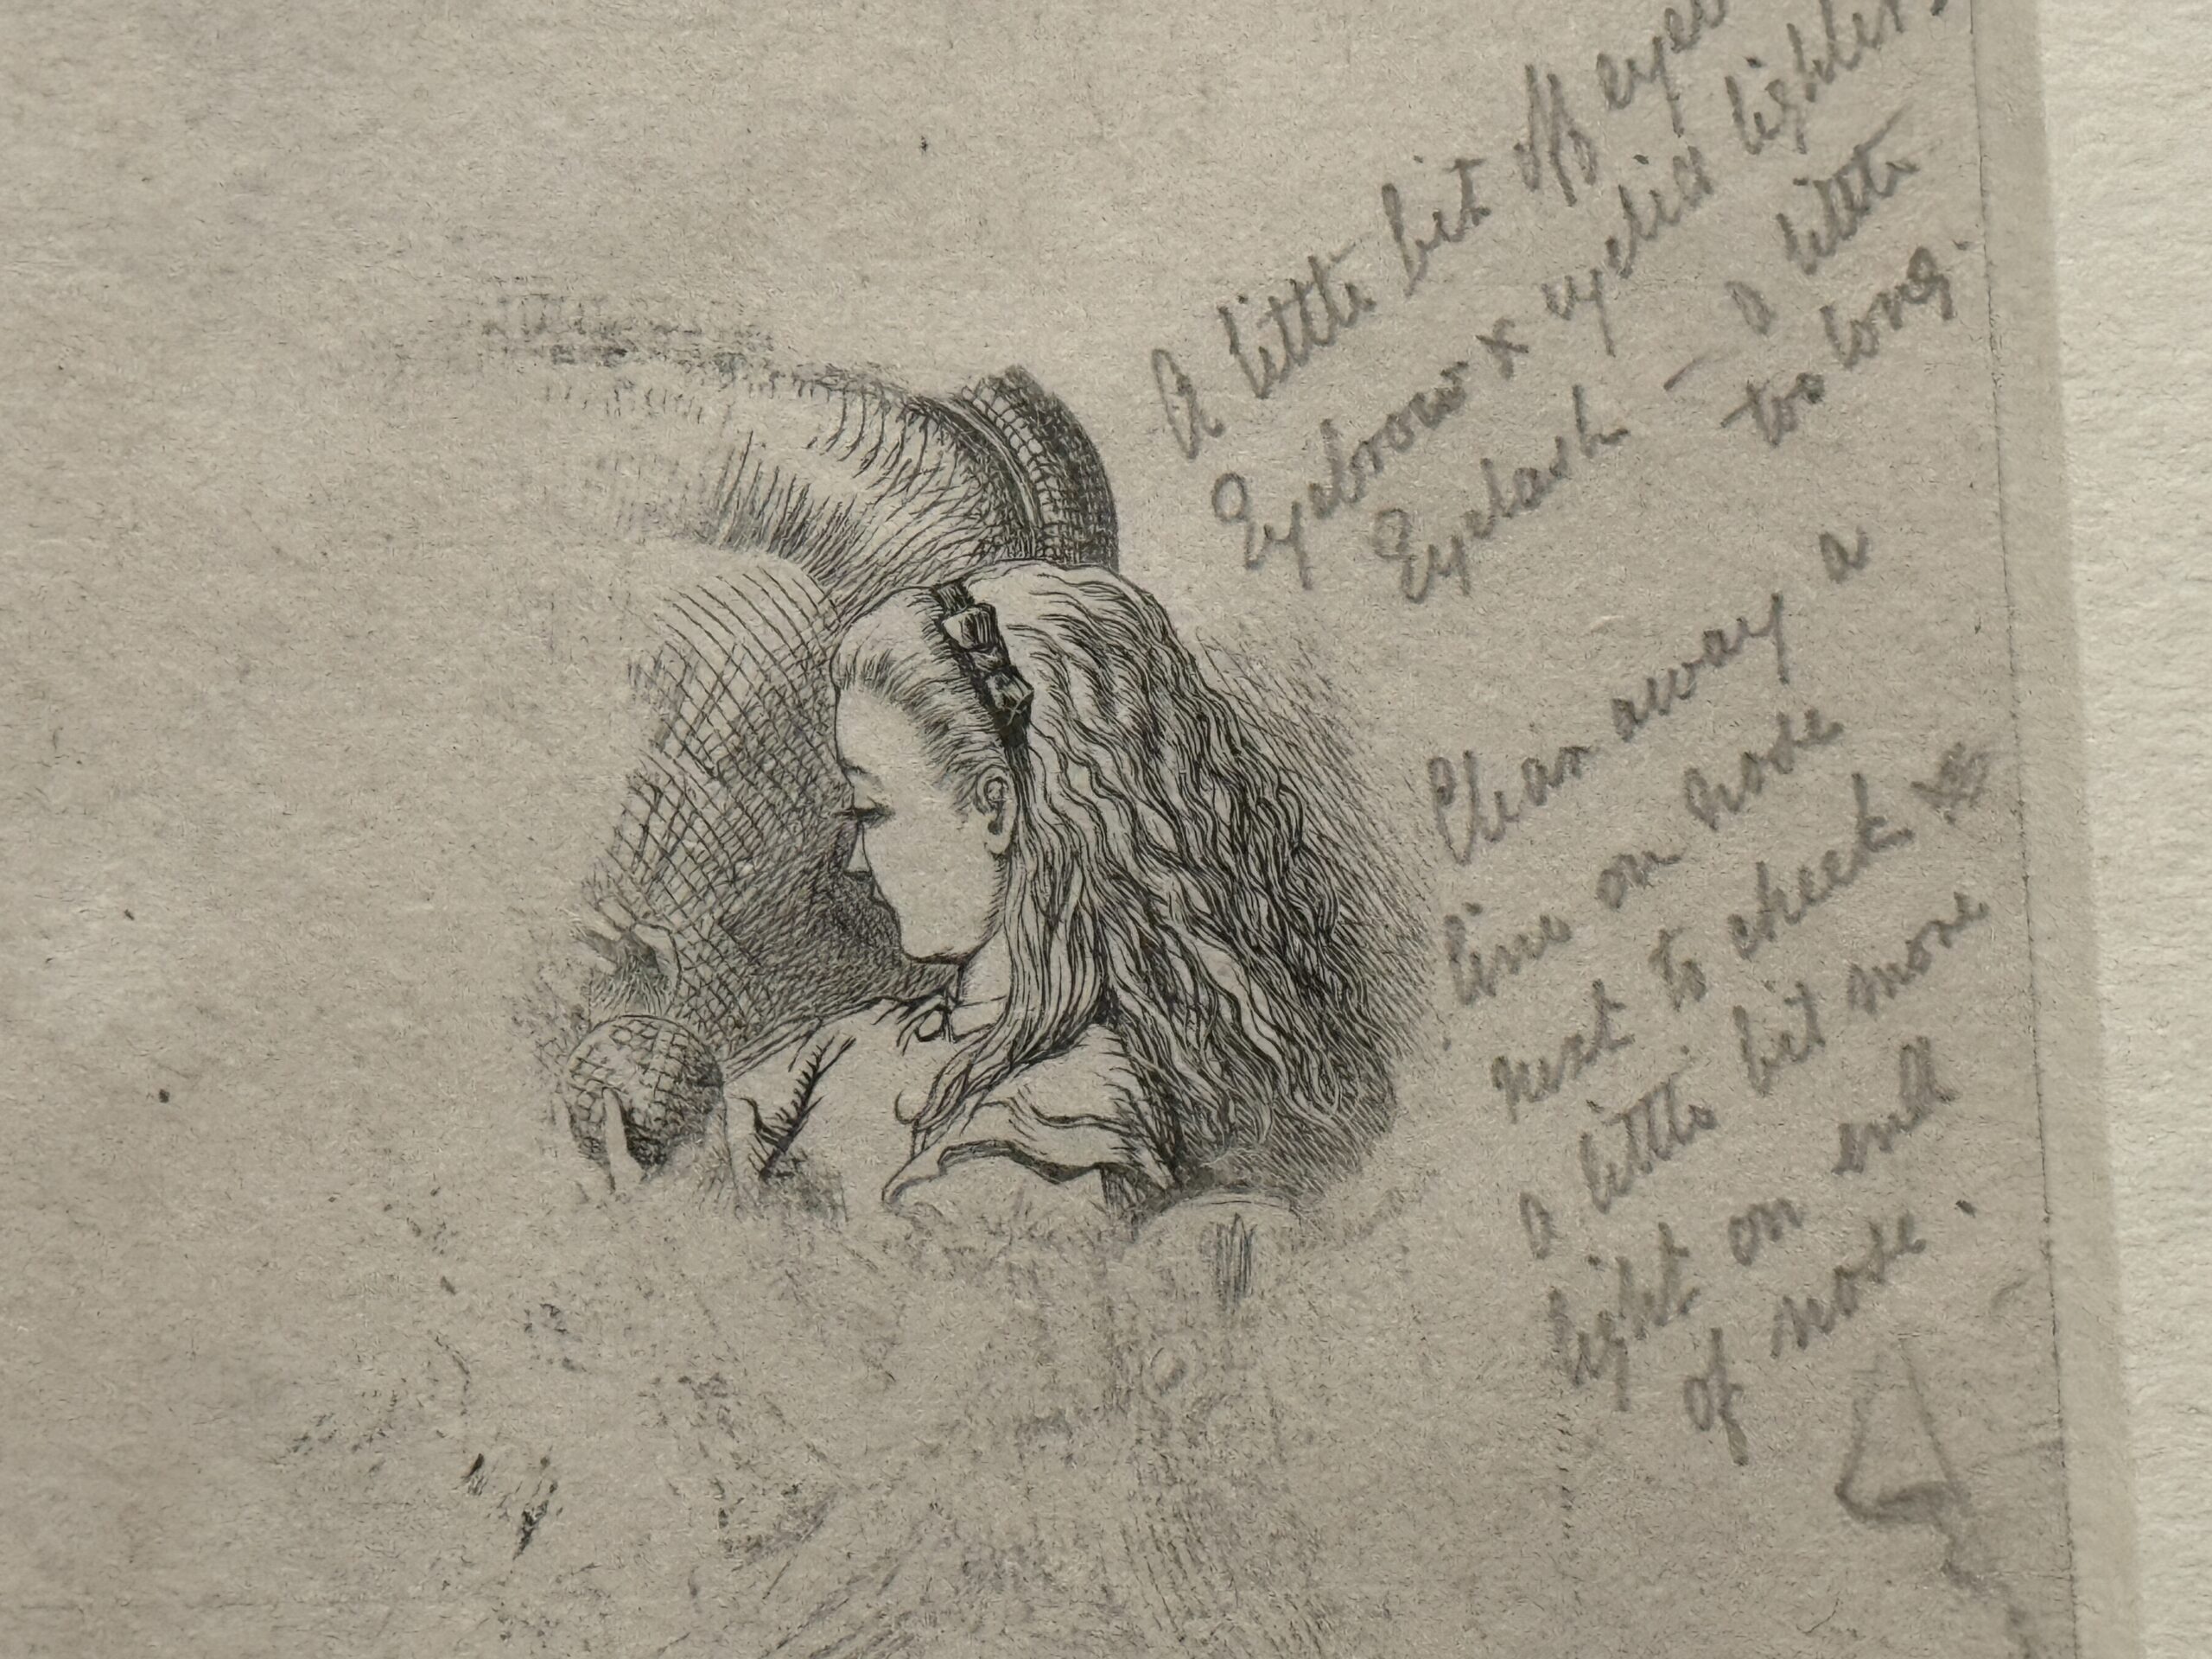 A little bit off
Eyebrow x eyelid lighter
Eyelash — a little
too long.
Clean away a
line on nose
next to cheek
a little bit more
light on end
of nose.